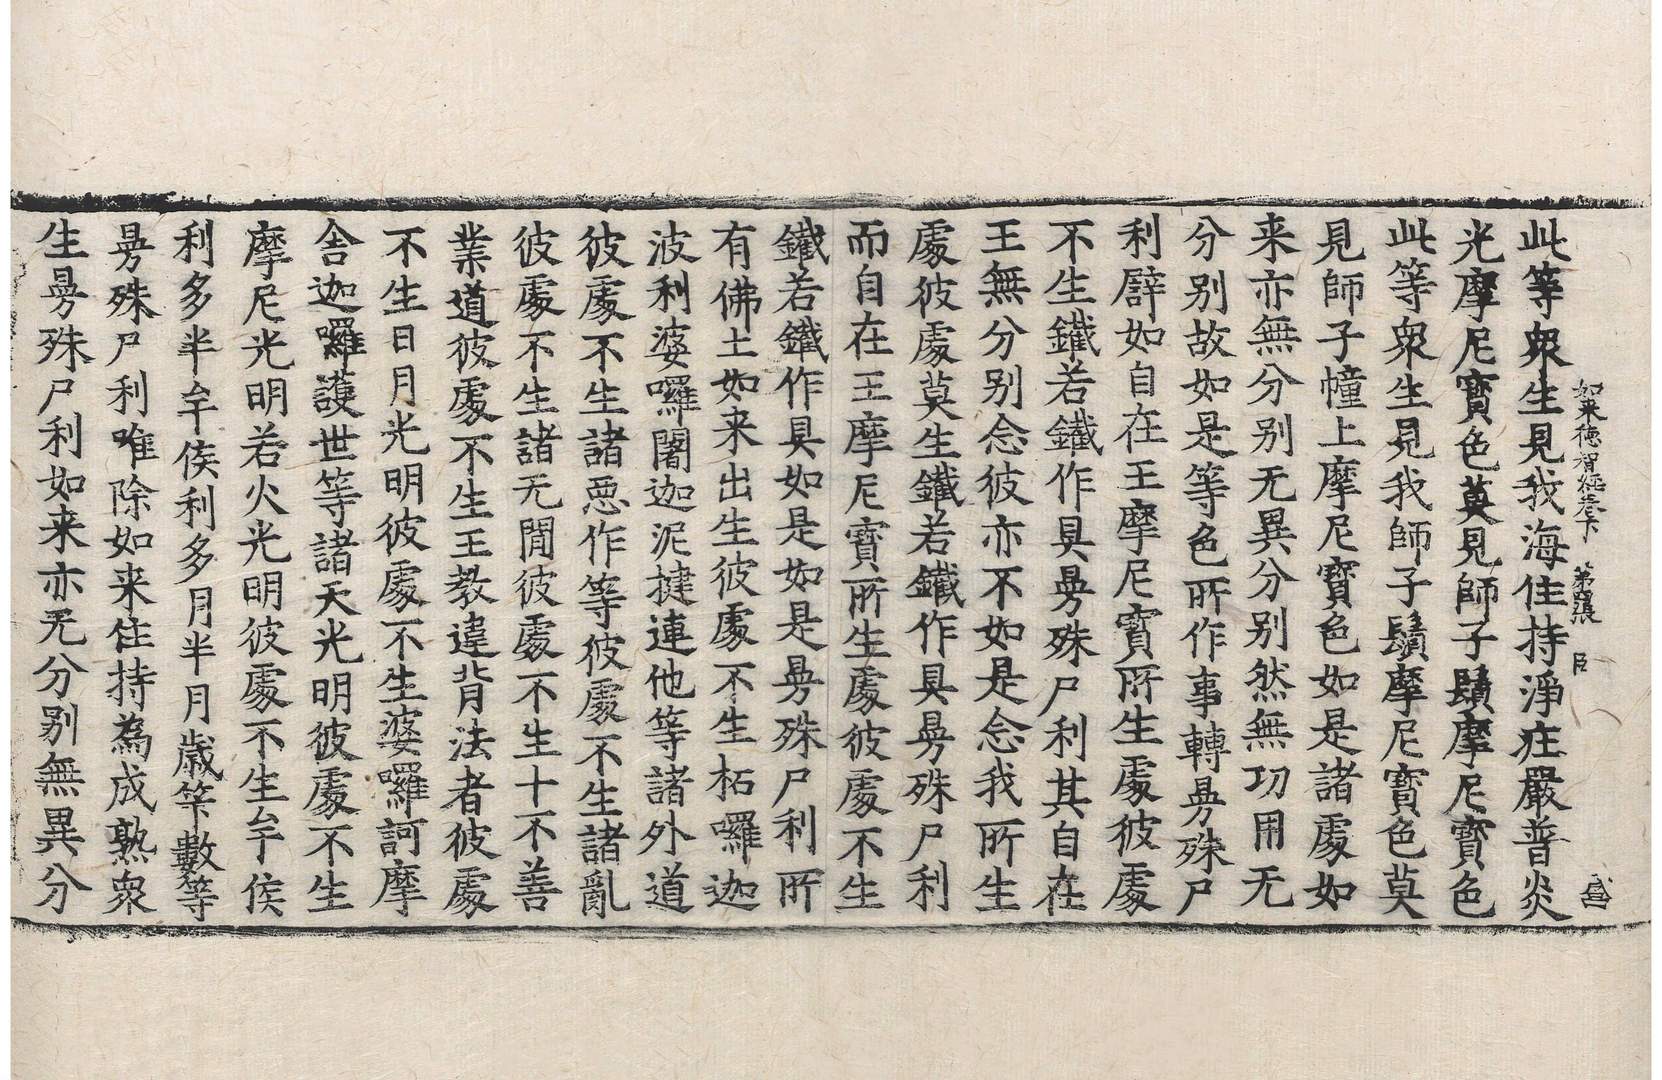 如来德智經卷下 第四張 臣
此等衆生見我海住持淨疰嚴普炎
光摩尼寶色莫見師子鬚摩尼寶色
此等衆生見我師子鬚摩尼寶色莫
見師子幢上摩尼寶色如是諸處如
来亦無分别无異分别然無功用无
分别故如是等色所作事轉㬅殊尸
利譬如自在王摩尼寶所生處彼處
不生鐵若鐵作具㬅殊尸利其自在
王無分别念彼亦不如是念我所生
處彼處莫生鐵若鐵作具㬅殊尸利
而自在王摩尼寶所生處彼處不生
鐵若鐵作具如是如是㬅殊尸利所
有佛土如来出生彼處不生柘囉迦
波利婆囉闍迦泥揵連他等諸外道
彼處不生諸惡作等彼處不生諸亂
彼處不生諸无閒彼處不生十不善
業道彼處不生王教違背法者彼處
不生日月光明彼處不生婆囉訶摩
舍迦囉護世等諸天光明彼處不生
摩尼光明若火光明彼處不生牟侯
利多半牟侯利多月半月歲筭數等
㬅殊尸利唯除如来住持為成熟衆
生㬅殊尸利如来亦无分别無異分